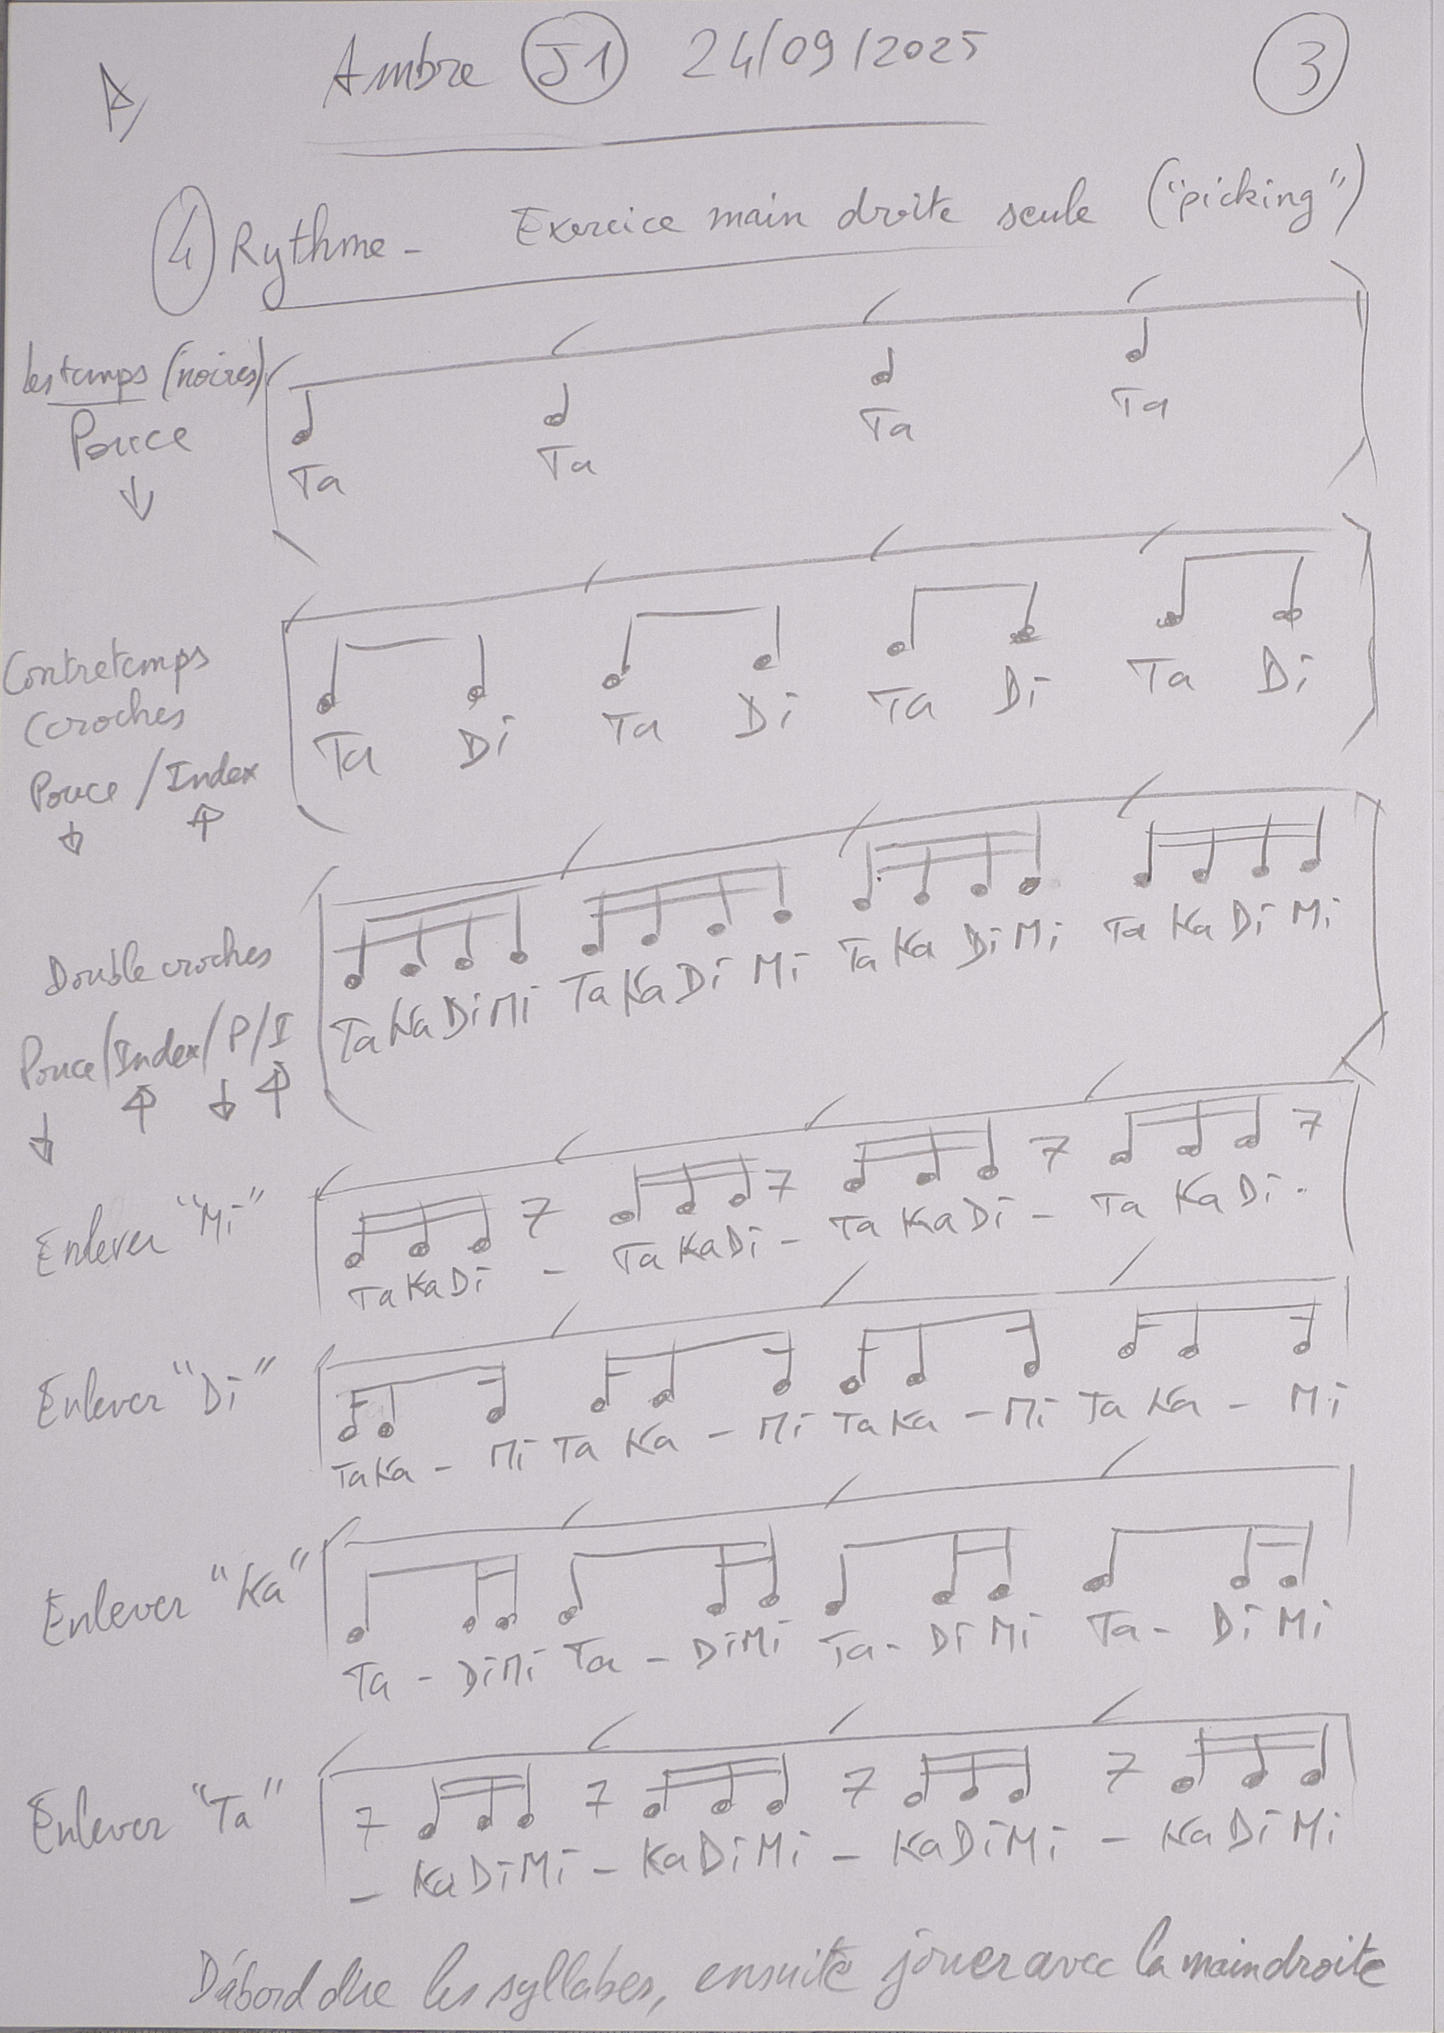 A Ambre J1 24/09/2025 3
4 Rythme - Exercice main droite seule ("picking")
les temps (noires)
Pouce
Ta Ta Ta Ta
Contretemps
Croches
Pouce / Index
Ta Di Ta Di Ta Di Ta Di
Double croches
Pouce/Index/P/I
Ta Ka Di Mi Ta Ka Di Mi Ta Ka Di Mi Ta Ka Di Mi
Enlever "Mi"
Ta Ka Di - Ta Ka Di - Ta Ka Di - Ta Ka Di -
Enlever "Di"
Ta Ka - Mi Ta Ka - Mi Ta Ka - Mi Ta Ka - Mi
Enlever "Ka"
Ta - Di Mi Ta - Di Mi Ta - Di Mi Ta - Di Mi
Enlever "Ta"
- Ka Di Mi - Ka Di Mi - Ka Di Mi - Ka Di Mi
D'abord dire les syllabes, ensuite jouer avec la main droite